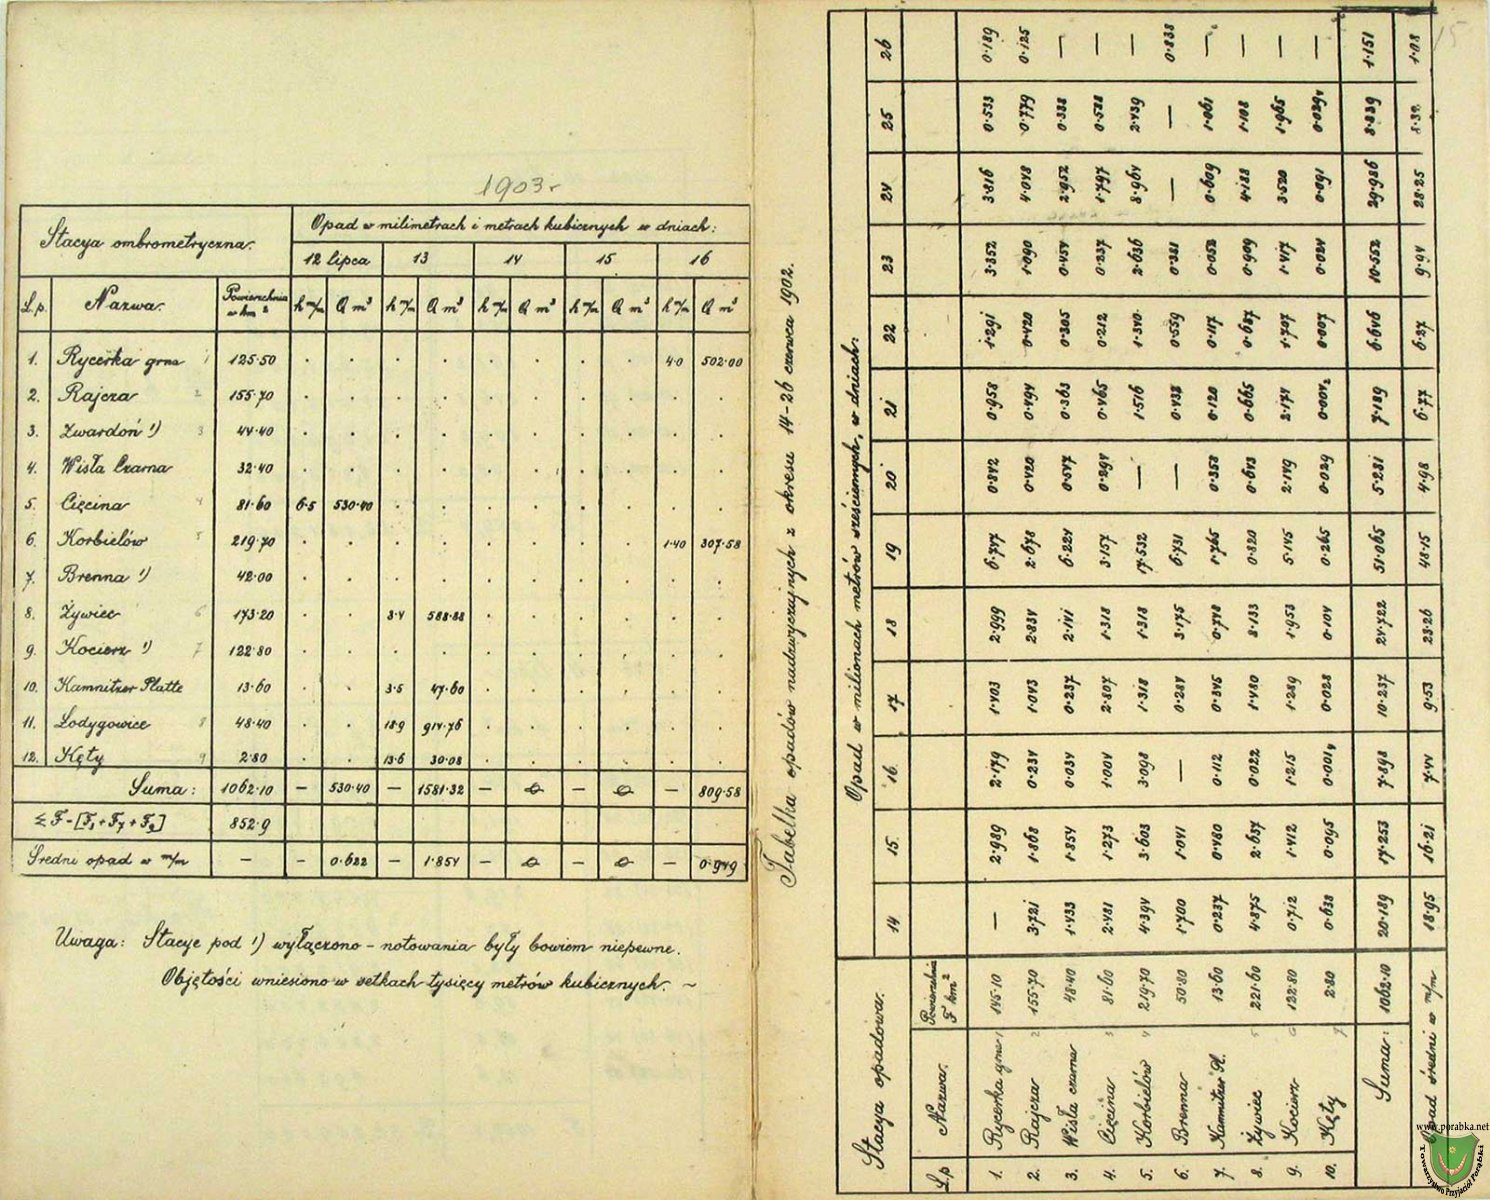 1903r
Stacya ombrometryczna. Opad w milimetrach i metrach kubicznych w dniach:
12 lipca 13 14 15 16
L.p. Nazwa. Powierzchnia w km² h m/m Q m³ h m/m Q m³ h m/m Q m³ h m/m Q m³ h m/m Q m³
1. Rycerka grna 1 125·50 . . . . . . . . 4·0 502·00
2. Rajcza 2 155·70 . . . . . . . . . .
3. Zwardoń ¹) 3 44·40 . . . . . . . . . .
4. Wisła Czarna 32·40 . . . . . . . . . .
5. Cięcina 4 81·60 6·5 530·40 . . . . . . . .
6. Korbielów 5 219·70 . . . . . . . . 1·40 307·58
7. Brenna ¹) 42·00 . . . . . . . . . .
8. Żywiec 6 173·20 . . 3·4 588·88 . . . . . .
9. Kocierz ¹) 7 122·80 . . . . . . . . . .
10. Kamnitzer Platte 13·60 . . 3·5 47·60 . . . . . .
11. Łodygowice 8 48·40 . . 18·9 914·76 . . . . . .
12. Kęty 9 2·80 . . 13·6 30·08 . . . . . .
Suma: 1062·10 — 530·40 — 1581·32 — 0 — 0 — 809·58
Σ F - [F₃ + F₇ + F₉] 852·9
Średni opad w m/m — — 0·622 — 1·854 — 0 — 0 — 0·949
Uwaga: Stacye pod ¹) wyłączono – notowania były bowiem niepewne.
Objętości wniesiono w setkach tysięcy metrów kubicznych. ~
15
Tabelka opadów nadzwyczajnych z okresu 14-26 czerwca 1902.
Stacya opadowa. Opad w milionach metrów sześciennych, w dniach:
L.p Nazwa. Powierzchnia F km² 14 15. 16. 17 18 19 20 21 22 23 24 25 26
1. Rycerka grna 1 145·10 — 2·989 2·179 1·403 2·999 6·747 0·842 0·958 1·291 3·352 3·816 0·533 0·189
2. Rajcza 2 155·70 3·721 1·868 0·234 1·043 2·834 2·678 0·420 0·494 0·420 1·090 4·048 0·779 0·125
3. Wisła czarna 48·40 1·433 1·854 0·034 0·237 2·141 6·224 0·547 0·363 0·305 0·454 2·952 0·338 —
4. Cięcina 3 81·60 2·481 1·273 1·004 2·807 1·318 3·157 0·294 0·465 0·212 0·237 1·797 0·588 —
5. Korbielów 4 219·70 4·394 3·603 3·098 1·318 1·318 17·532 — 1·516 1·340 2·636 8·964 2·439 —
6. Brenna 50·80 1·700 1·041 — 0·284 3·175 6·731 — 0·432 0·559 0·381 — — 0·838
7. Kamnitzer Pl. 13·60 0·237 0·480 0·112 0·345 0·748 1·765 0·358 0·120 0·117 0·052 0·609 1·061 —
8. Żywiec 5 221·60 4·875 2·637 0·022 1·480 8·133 0·820 0·643 0·665 0·687 0·909 4·188 1·108 —
9. Kocierz 6 122·80 0·712 1·412 1·215 1·289 1·953 5·145 2·149 2·171 1·707 1·417 3·520 1·965 —
10. Kęty 7 2·80 0·638 0·095 0·001 0·028 0·104 0·265 0·029 0·004₂ 0·007 0·024 0·091 0·029 —
Suma: 1062·10 20·189 17·253 7·898 10·237 24·722 51·065 5·281 7·189 6·646 10·552 29·986 8·839 1·151
Opad średni w m/m 18·95 16·21 7·44 9·53 23·26 48·15 4·98 6·77 6·27 9·94 28·25 8·32 1·08
www.porabka.net
Towarzystwo Przyjaciół Porąbki